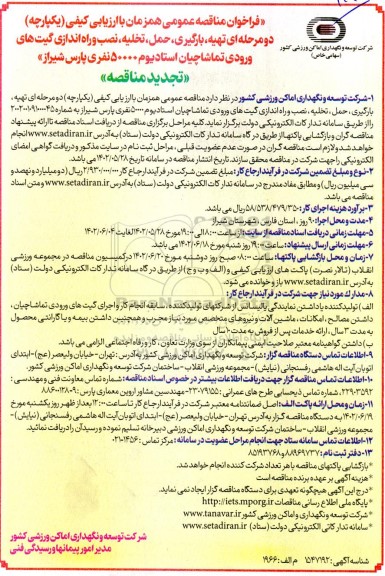 «فراخوان مناقصه عمومی همزمان با ارزیابی کیفی (یکپارچه)
دو مرحله ای تهیه، بارگیری، حمل، تخلیه، نصب و راه اندازی گیت های
ورودی تماشاچیان استادیوم ۵۰۰۰۰ نفری پارس شیراز»
«تجدید مناقصه»
شرکت توسعه و نگهداری اماکن ورزشی کشور
(سهامی خاص)
۱-شرکت توسعه و نگهداری اماکن ورزشی کشور در نظر دارد مناقصه عمومی همزمان با ارزیابی کیفی (یکپارچه) دو مرحله ای تهیه،
بارگیری، حمل، تخلیه، نصب و راه اندازی گیت های ورودی تماشاچیان استادیوم ۵۰۰۰۰ نفری پارس شیراز به شماره
را از طریق سامانه تدارکات الکترونیکی دولت برگزار نماید. کلیه مراحل برگزاری مناقصه از دریافت اسناد مناقصه تا ارائه پیشنهاد
مناقصه گران و بازگشایی پاکتها از طریق درگاه سامانه تدارکات الکترونیکی دولت (ستاد) به آدرس www.setadiran.ir انجام
خواهد شد و لازم است مناقصه گران در صورت عدم عضویت قبلی، مراحل ثبت نام در سایت مذکور و دریافت گواهی امضای
الکترونیکی را جهت شرکت در مناقصه محقق سازند. تاریخ انتشار مناقصه در سامانه تاریخ ۱۴۰۲/۰۵/۲۸ می باشد.
۲-نوع و مبلغ تضمین شرکت در فرآیند ارجاع کار: مبلغ تضمین شرکت در فرآیند ارجاع کار ۲/۹۳۰/۰۰۰/۰۰۰ ریال (دو میلیارد و نهصد و
سی میلیون ریال) و مطابق مفاد مندرج در سامانه تدارکات الکترونیکی دولت (ستاد) به آدرس www.setadiran.ir و متن اسناد
مناقصه می باشد.
۳-برآورد هزینه اجرای کار: ۵۸/۵۳۸/۴۷۹/۳۵۰ ریال می باشد.
۴-مدت و محل اجرا: ۹۰ روز، استان فارس، شهرستان شیراز
۵-مهلت زمانی دریافت اسناد مناقصه از سایت: از ساعت ۱۸:۰۰ الی ۱۹:۰۰ مورخ ۱۴۰۲/۰۵/۲۸ لغایت ۱۴۰۲/۰۶/۰۴
۶-مهلت زمانی ارسال پیشنهاد: ساعت ۱۹:۰۰ روز شنبه مورخ ۱۴۰۲/۰۶/۱۸ می باشد.
۷-زمان و محل بازگشایی پاکتها: ساعت ۰۸:۰۰ صبح روز دوشنبه مورخ ۱۴۰۲/۰۶/۲۰ در کمیسیون مناقصه در مجموعه ورزشی
انقلاب (تالار نصرت) پاکت های ارزیابی کیفی و (الف و ب و ج) از طریق درگاه سامانه تدارکات الکترونیکی دولت (ستاد)
به آدرس www.setadiran.ir باز و خوانده می شود.
۸-مدارک مورد نیاز جهت شرکت در فرآیند ارجاع کار:
الف) تولیدکننده یا داشتن نمایندگی یا لیسانس از شرکتهای تولیدکننده، سابقه انجام کار و اجرای گیت های ورودی تماشاچیان،
داشتن مصالح، امکانات، ماشین آلات و نیروهای متخصص مورد نیاز مجرب و همچنین داشتن بیمه و یا گارانتی محصول
به مدت ۳ سال، ارائه خدمات پس از فروش به مدت ۱۰ سال
ب) داشتن گواهینامه معتبر صلاحیت ایمنی پیمانکاران از سوی وزارت تعاون، کار و رفاه اجتماعی الزامی می باشد.
۹-اطلاعات تماس دستگاه مناقصه گزار: شرکت توسعه و نگهداری اماکن ورزشی کشور به آدرس: تهران-خیابان ولیعصر (عج)-ابتدای
اتوبان آیت اله هاشمی رفسنجانی (نیایش)-مجموعه ورزشی انقلاب-ساختمان شرکت توسعه و نگهداری اماکن ورزشی کشور.
۱۰-اطلاعات تماس مناقصه گزار جهت دریافت اطلاعات بیشتر در خصوص اسناد مناقصه: شماره تماس معاونت فنی و مهندسی:
۲۲۹۰۳۵۹۲، شماره تماس ذیحسابی طرح های عمرانی: ۲۳۰۷۹۱۵۵-مهندسین مشاور اروین معماری پارس:
۱۱-زمان و محل ارائه پاکت الف: اصل ضمانتنامه معتبر شرکت در فرآیند ارجاع کار تا ساعت ۱۲:۰۰ بعد از ظهر روز یکشنبه مورخ
۱۴۰۲/۰۶/۱۹ به دستگاه مناقصه گزار به آدرس تهران-خیابان ولیعصر (عج)-ابتدای اتوبان آیت اله هاشمی رفسنجانی (نیایش)-
مجموعه ورزشی انقلاب-ساختمان شرکت توسعه و نگهداری اماکن ورزشی دبیرخانه تسلیم نموده و رسید آن را دریافت نمائید.
۱۲-اطلاعات تماس سامانه ستاد جهت انجام مراحل عضویت در سامانه: مرکز تماس: ۱۴۵۶-۰۲۱
۱۳-دفتر ثبت نام: ۸۸۹۶۹۷۳۷ و ۸۵۱۹۳۷۶۸
*بازگشایی پاکتهای مناقصه با هر تعداد شرکت کننده انجام خواهد شد.
*هزینه آگهی بر عهده برنده مناقصه است
*درج این آگهی هیچگونه تعهدی برای دستگاه مناقصه گزار ایجاد نمی نماید.
*پایگاه ملی اطلاع رسانی مناقصات http://iets.mporg.ir
*شرکت توسعه و نگهداری اماکن ورزشی کشور www.tanavar.ir
*سامانه تدارکاتی الکترونیکی دولت (ستاد) www.setadiran.ir
شرکت توسعه و نگهداری اماکن ورزشی کشور
مدیر امور پیمانها و رسیدگی فنی
شناسه آگهی: ۱۵۴۷۱۹۲ م الف: ۱۹۶۶